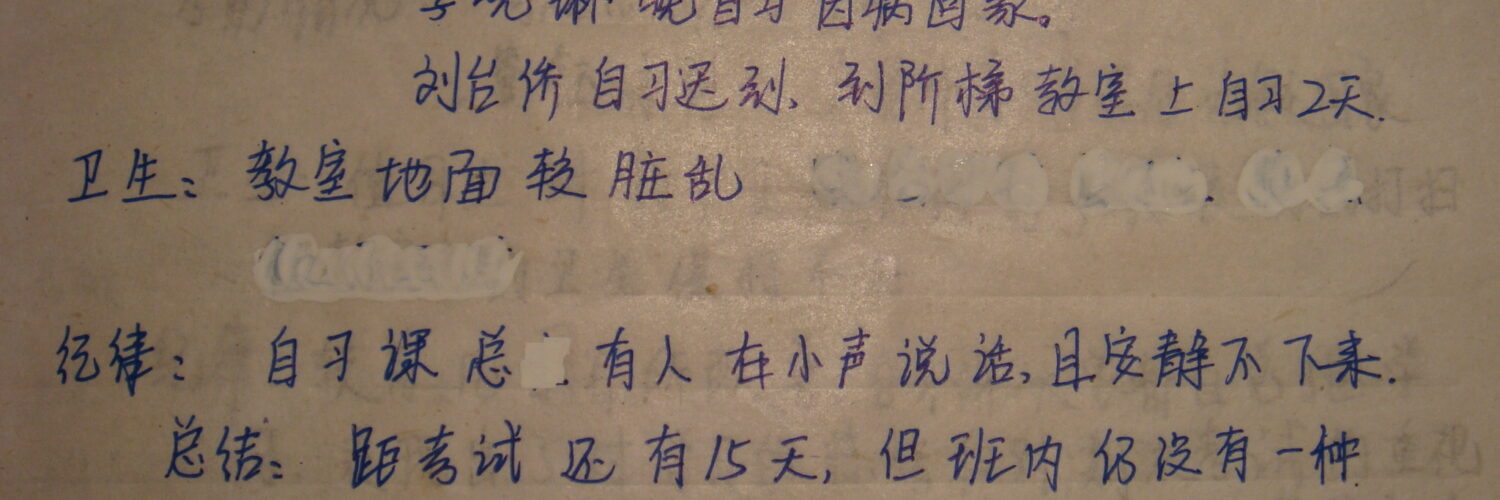 晚自习因病回家。
刘台侨自习迟到、到阶梯教室上自习2天.
卫生：教室地面较脏乱
纪律：自习课总有人在小声说话,且安静不下来.
总结：距考试还有15天,但班内仍没有一种